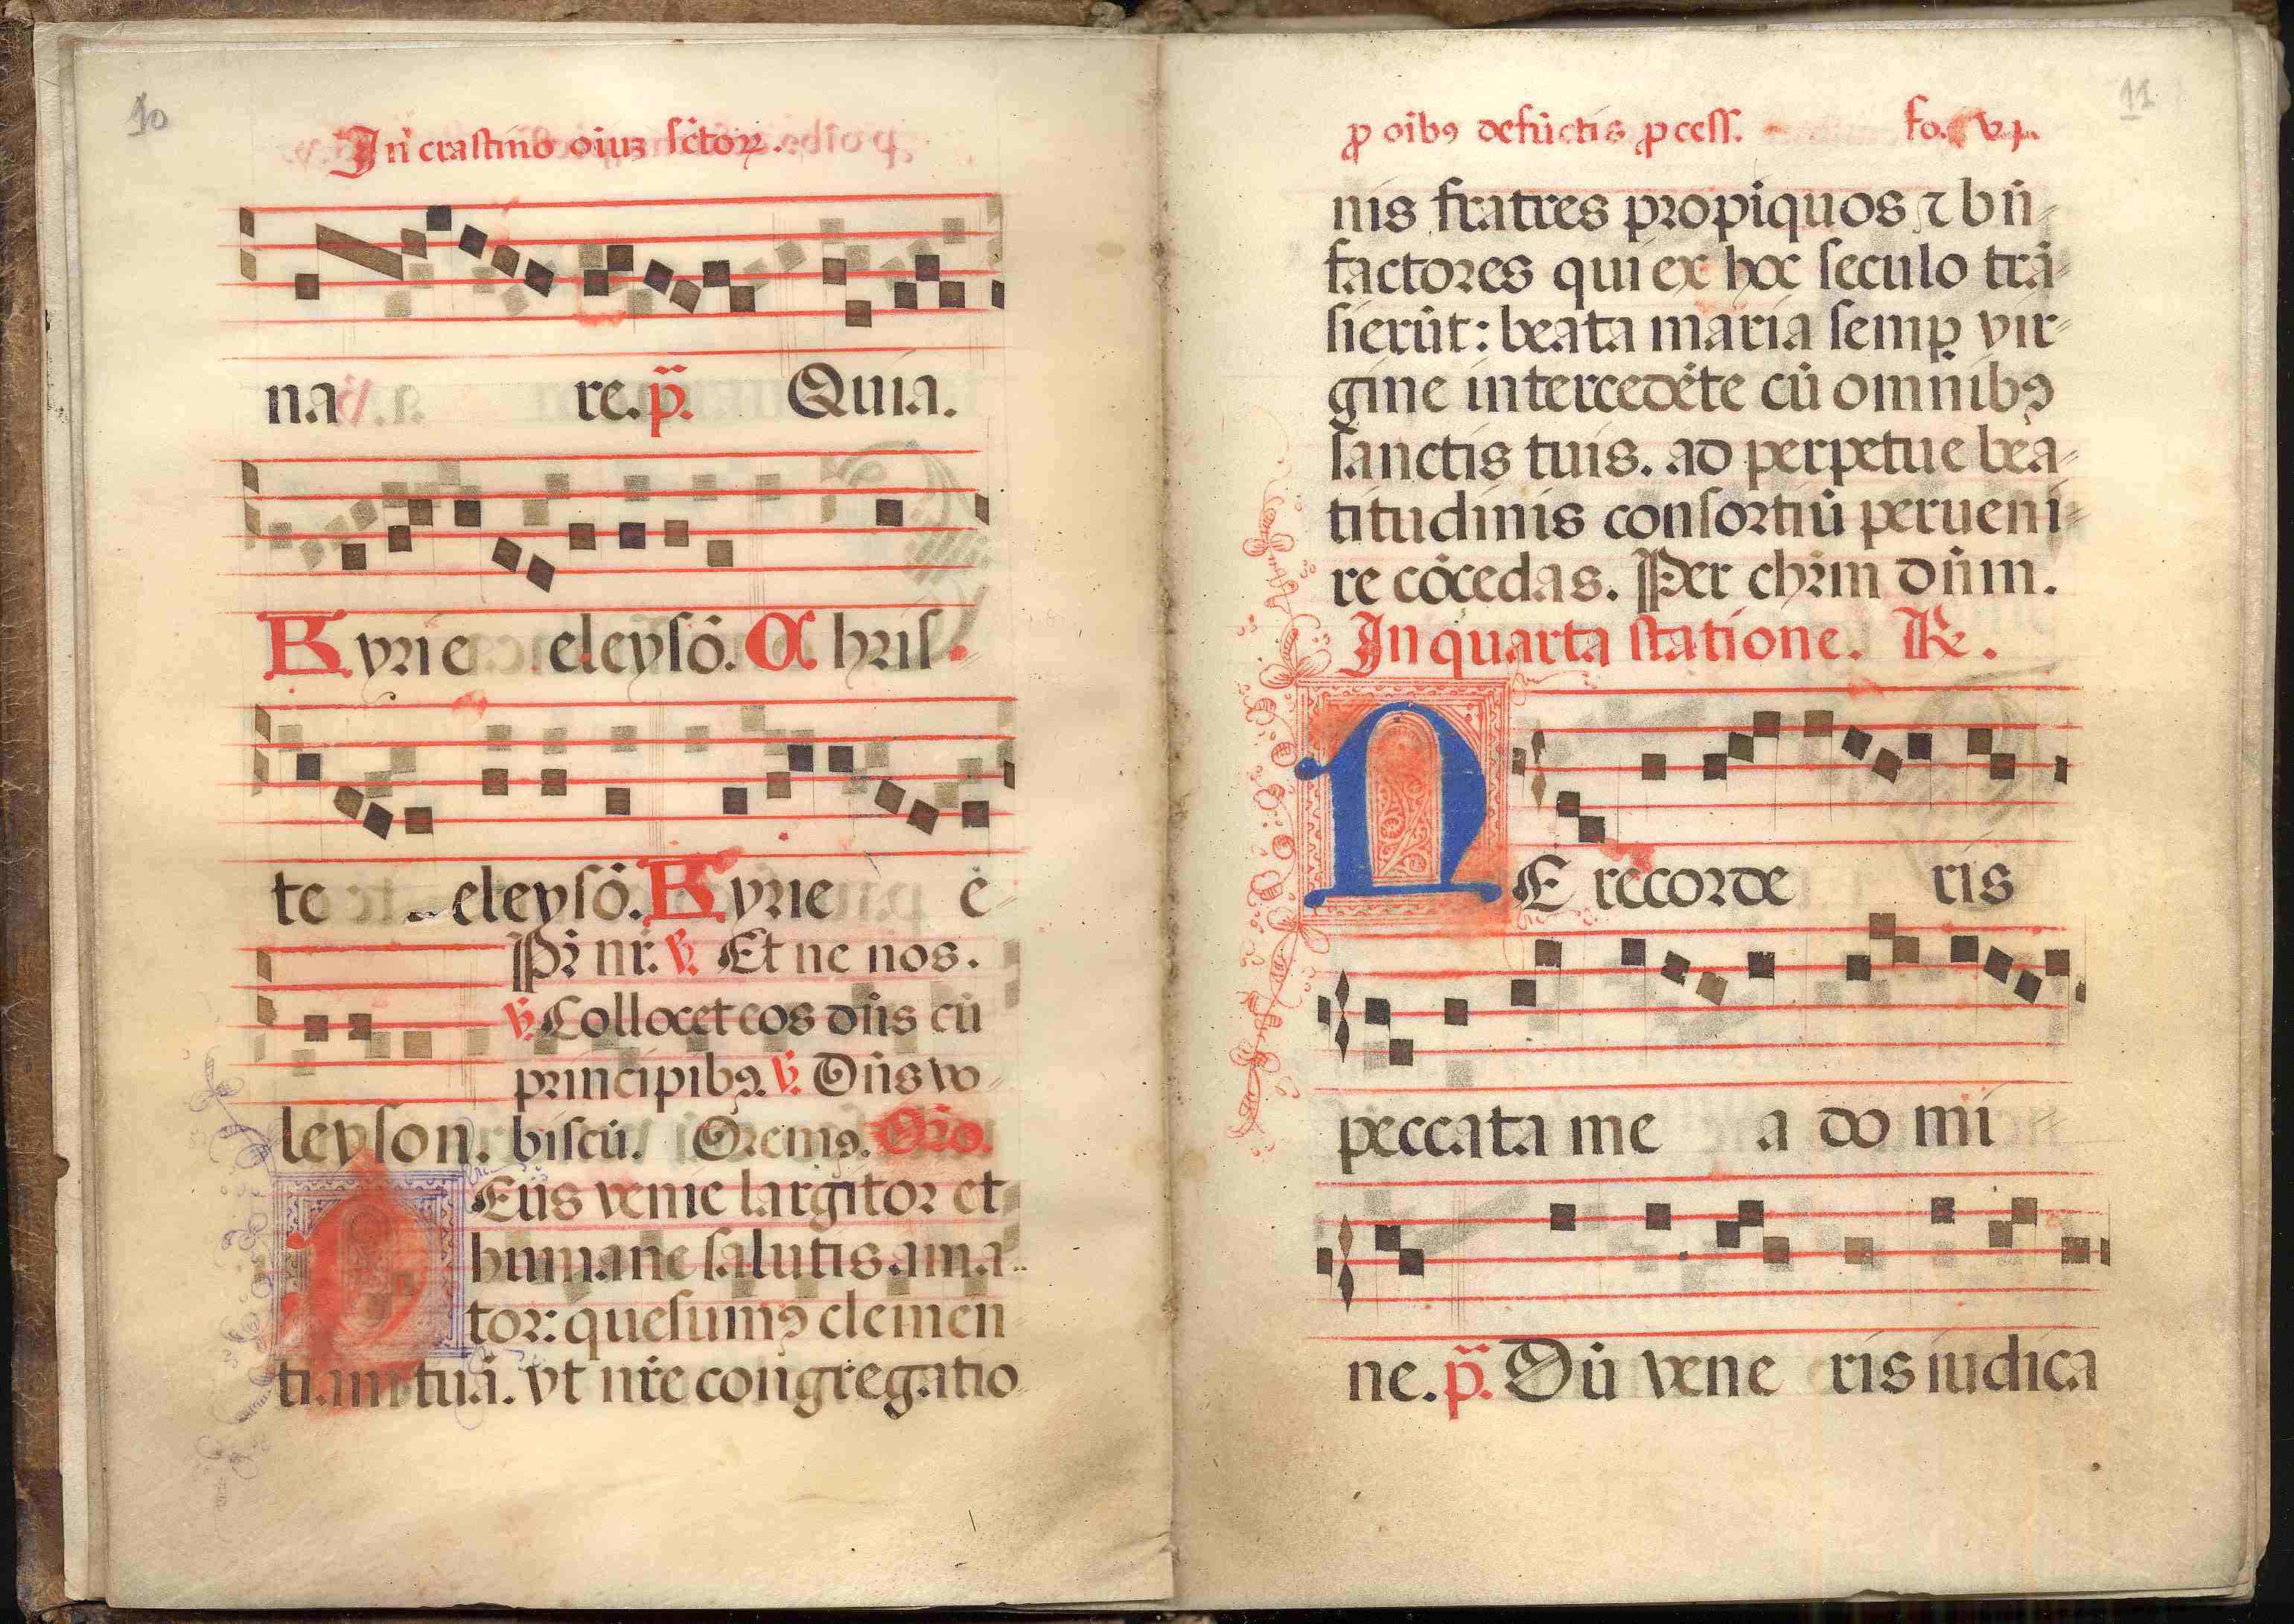 10
In crastino oiuʒ sctoꝝ.
na re. p̄. Quia.
Kyrie eleysō. Chriſ-
te eleysō. Kyrie e-
Pr̄ nr̄. ℣. Et ne nos.
℣. Collocet eos dn̄s cū
principibꝰ. ℣. Dn̄s vo-
leyson. biscū. Oremꝰ. Oro.
Deus venie largitor et
humane salutis ama-
tor: quesumꝰ clemen
tiam tuā. vt nr̄e congregatio
11
ꝓ oibꝰ defūctis ꝓcess. fo. vj.
nis fratres propīquos ⁊ bn̄-
factores qui ex hoc seculo trā-
sierūt: beata maria semꝑ vir-
gine intercedēte cū omnibꝰ
sanctis tuis. ad perpetue bea-
titudinis consortiū perueni-
re cōcedas. Per chrm̄ dn̄m.
In quarta statione. ℟.
NE recorde ris
peccata me a do mi-
ne. p̄. Dū vene ris iudica